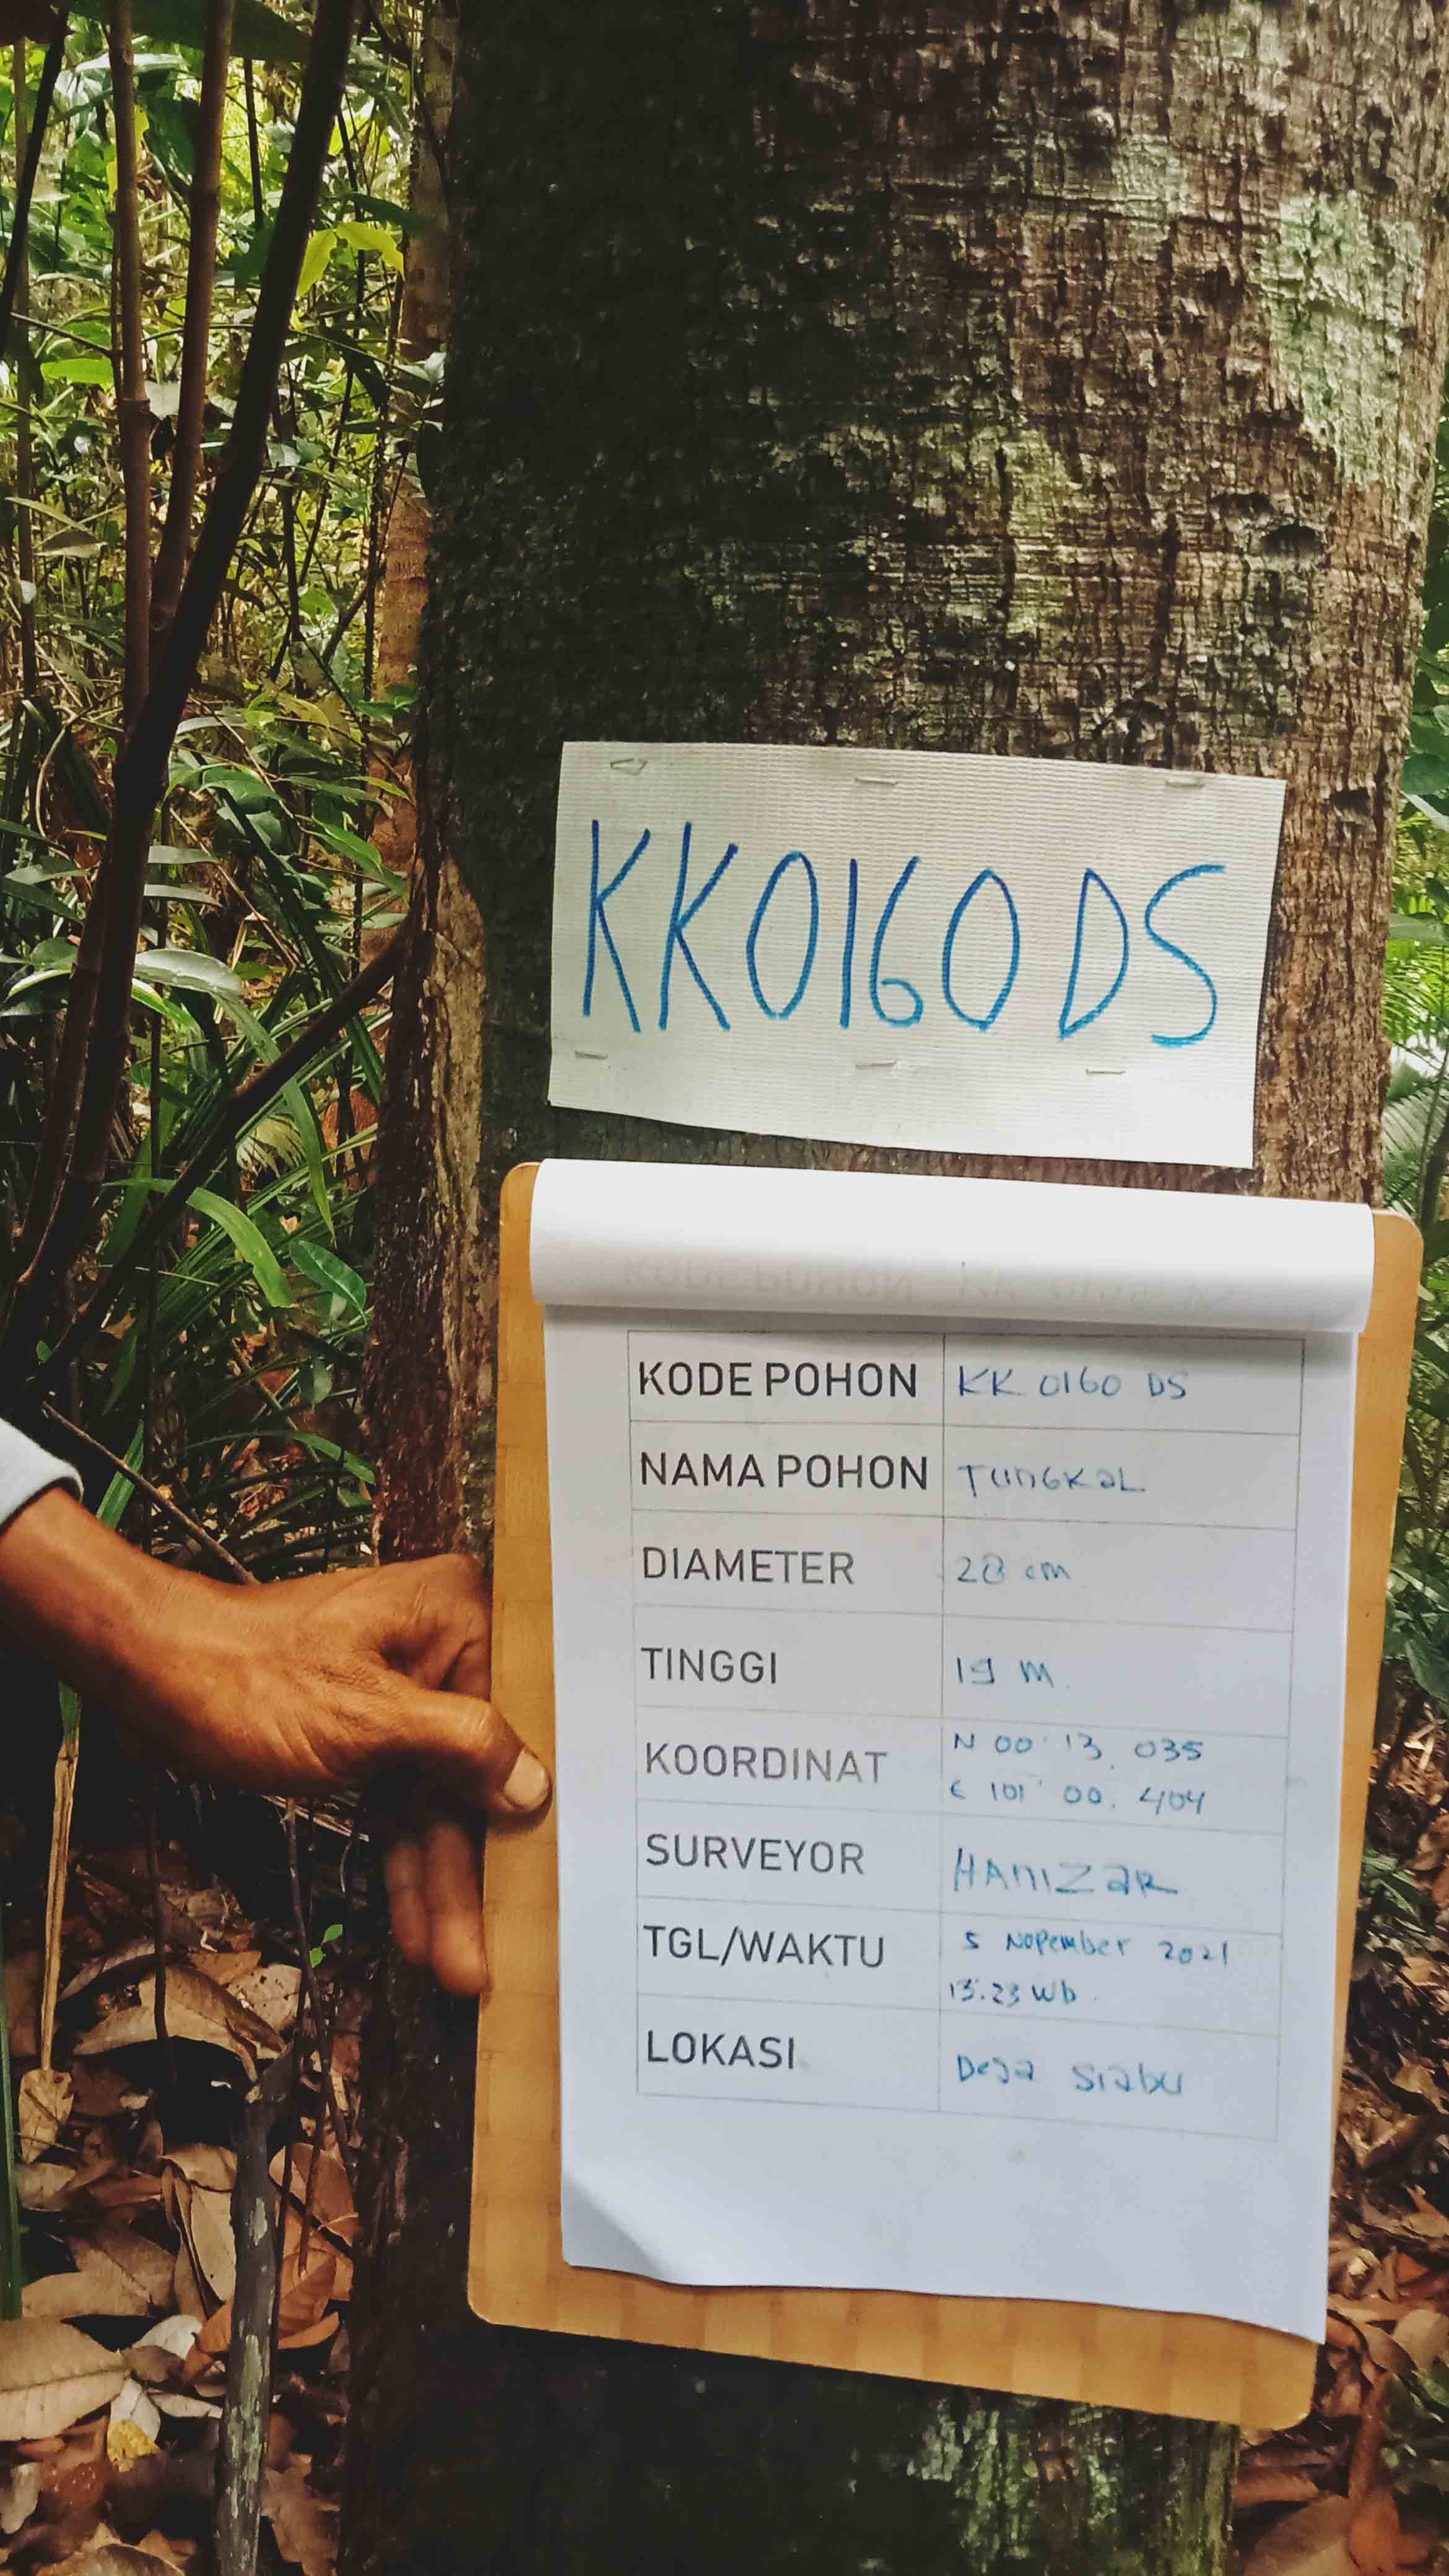 KK0160 DS
KODE POHON KK 0160 DS
NAMA POHON TUNGKAL
DIAMETER 28 cm
TINGGI 19 m
KOORDINAT N 00° 13. 035
E 101° 00. 404
SURVEYOR HANIZAR
TGL/WAKTU 5 Nopember 2021
13.23 Wb
LOKASI Desa Siabu